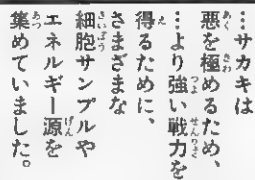 …サカキは
悪を極めるため、
…より強い戦力を
得るために、
さまざまな
細胞サンプルや
エネルギー源を
集めていました。